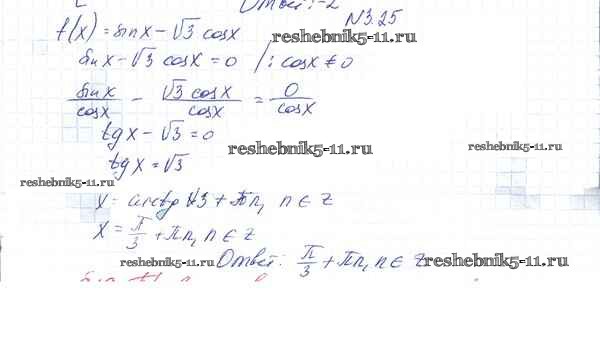 Ответ: -2
N3.25
f(x) = sinx - √3 cosx
reshebnik5-11.ru
sinx - √3 cosx = 0 /: cosx ≠ 0
sinx/cosx - √3 cosx/cosx = 0/cosx
tgx - √3 = 0
reshebnik5-11.ru
reshebnik5-11.ru
tgx = √3
reshebnik5-11.ru
x = arctg √3 + πn, n ∈ z
x = π/3 + πn, n ∈ z
reshebnik5-11.ru
Ответ: π/3 + πn, n ∈ z
reshebnik5-11.ru